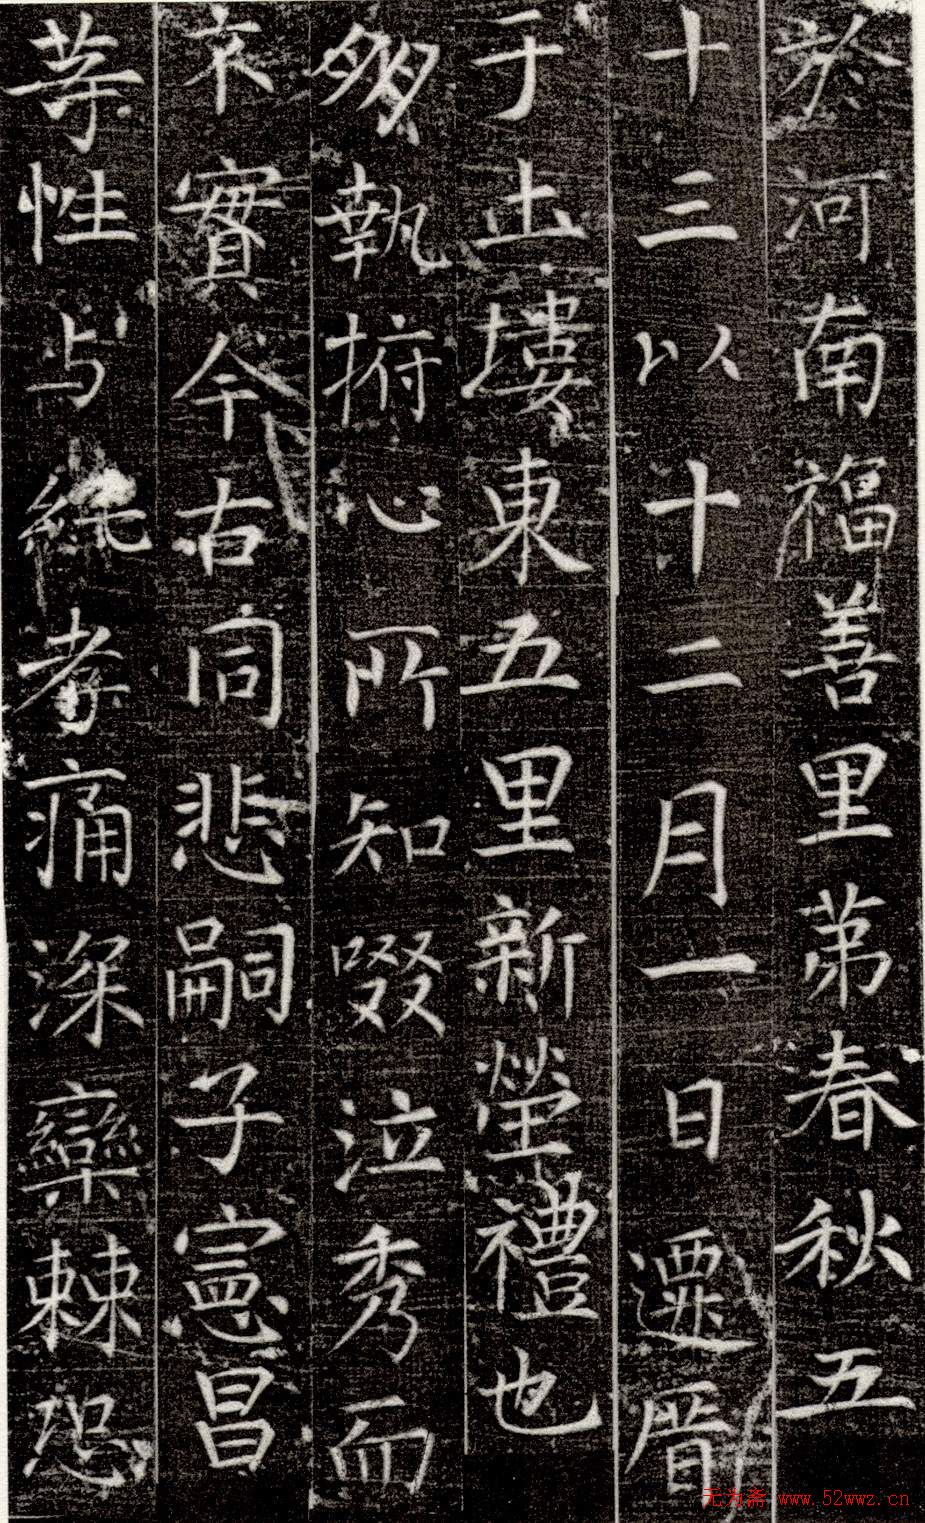 於河南福善里第春秋五
十三以十二月一日遷厝
于土塿東五里新塋禮也
朋執拊心所知啜泣秀而
不實今古同悲嗣子憲昌
等性与純孝痛深欒棘恐
无为斋 www.52wwz.cn